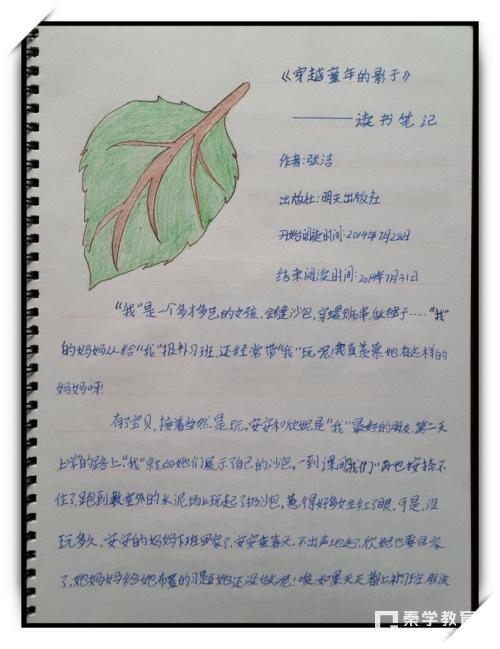 《穿越童年的影子》
——读书笔记
作者:张洁
出版社:明天出版社
开始阅读时间:2014年7月28日
结束阅读时间:2014年7月31日
“我”是一个多才多艺的女孩,会缝沙包,穿螺蛳串,做毽子……“我”
的妈妈从给“我”报补习班,还经常带“我”玩呢!我真羡慕她有这样的
妈妈呀!
有了宝贝,接着当然是玩,安安和欣妮是“我”最好的朋友,第二天
上学的路上“我”就向她们展示了自己的沙包,一到课间“我们”再也按捺不
住了,跑到教室外的水泥场上玩起了扔沙包,惹得好多女生红了眼,可是,没
玩多久,安安的妈妈下班回家了,安安垂着头,不出声地走了,欣妮也要回家
了,她妈妈给她布置的习题她还没做呢!唉,如果天天都上补习班,那该
秦学教育